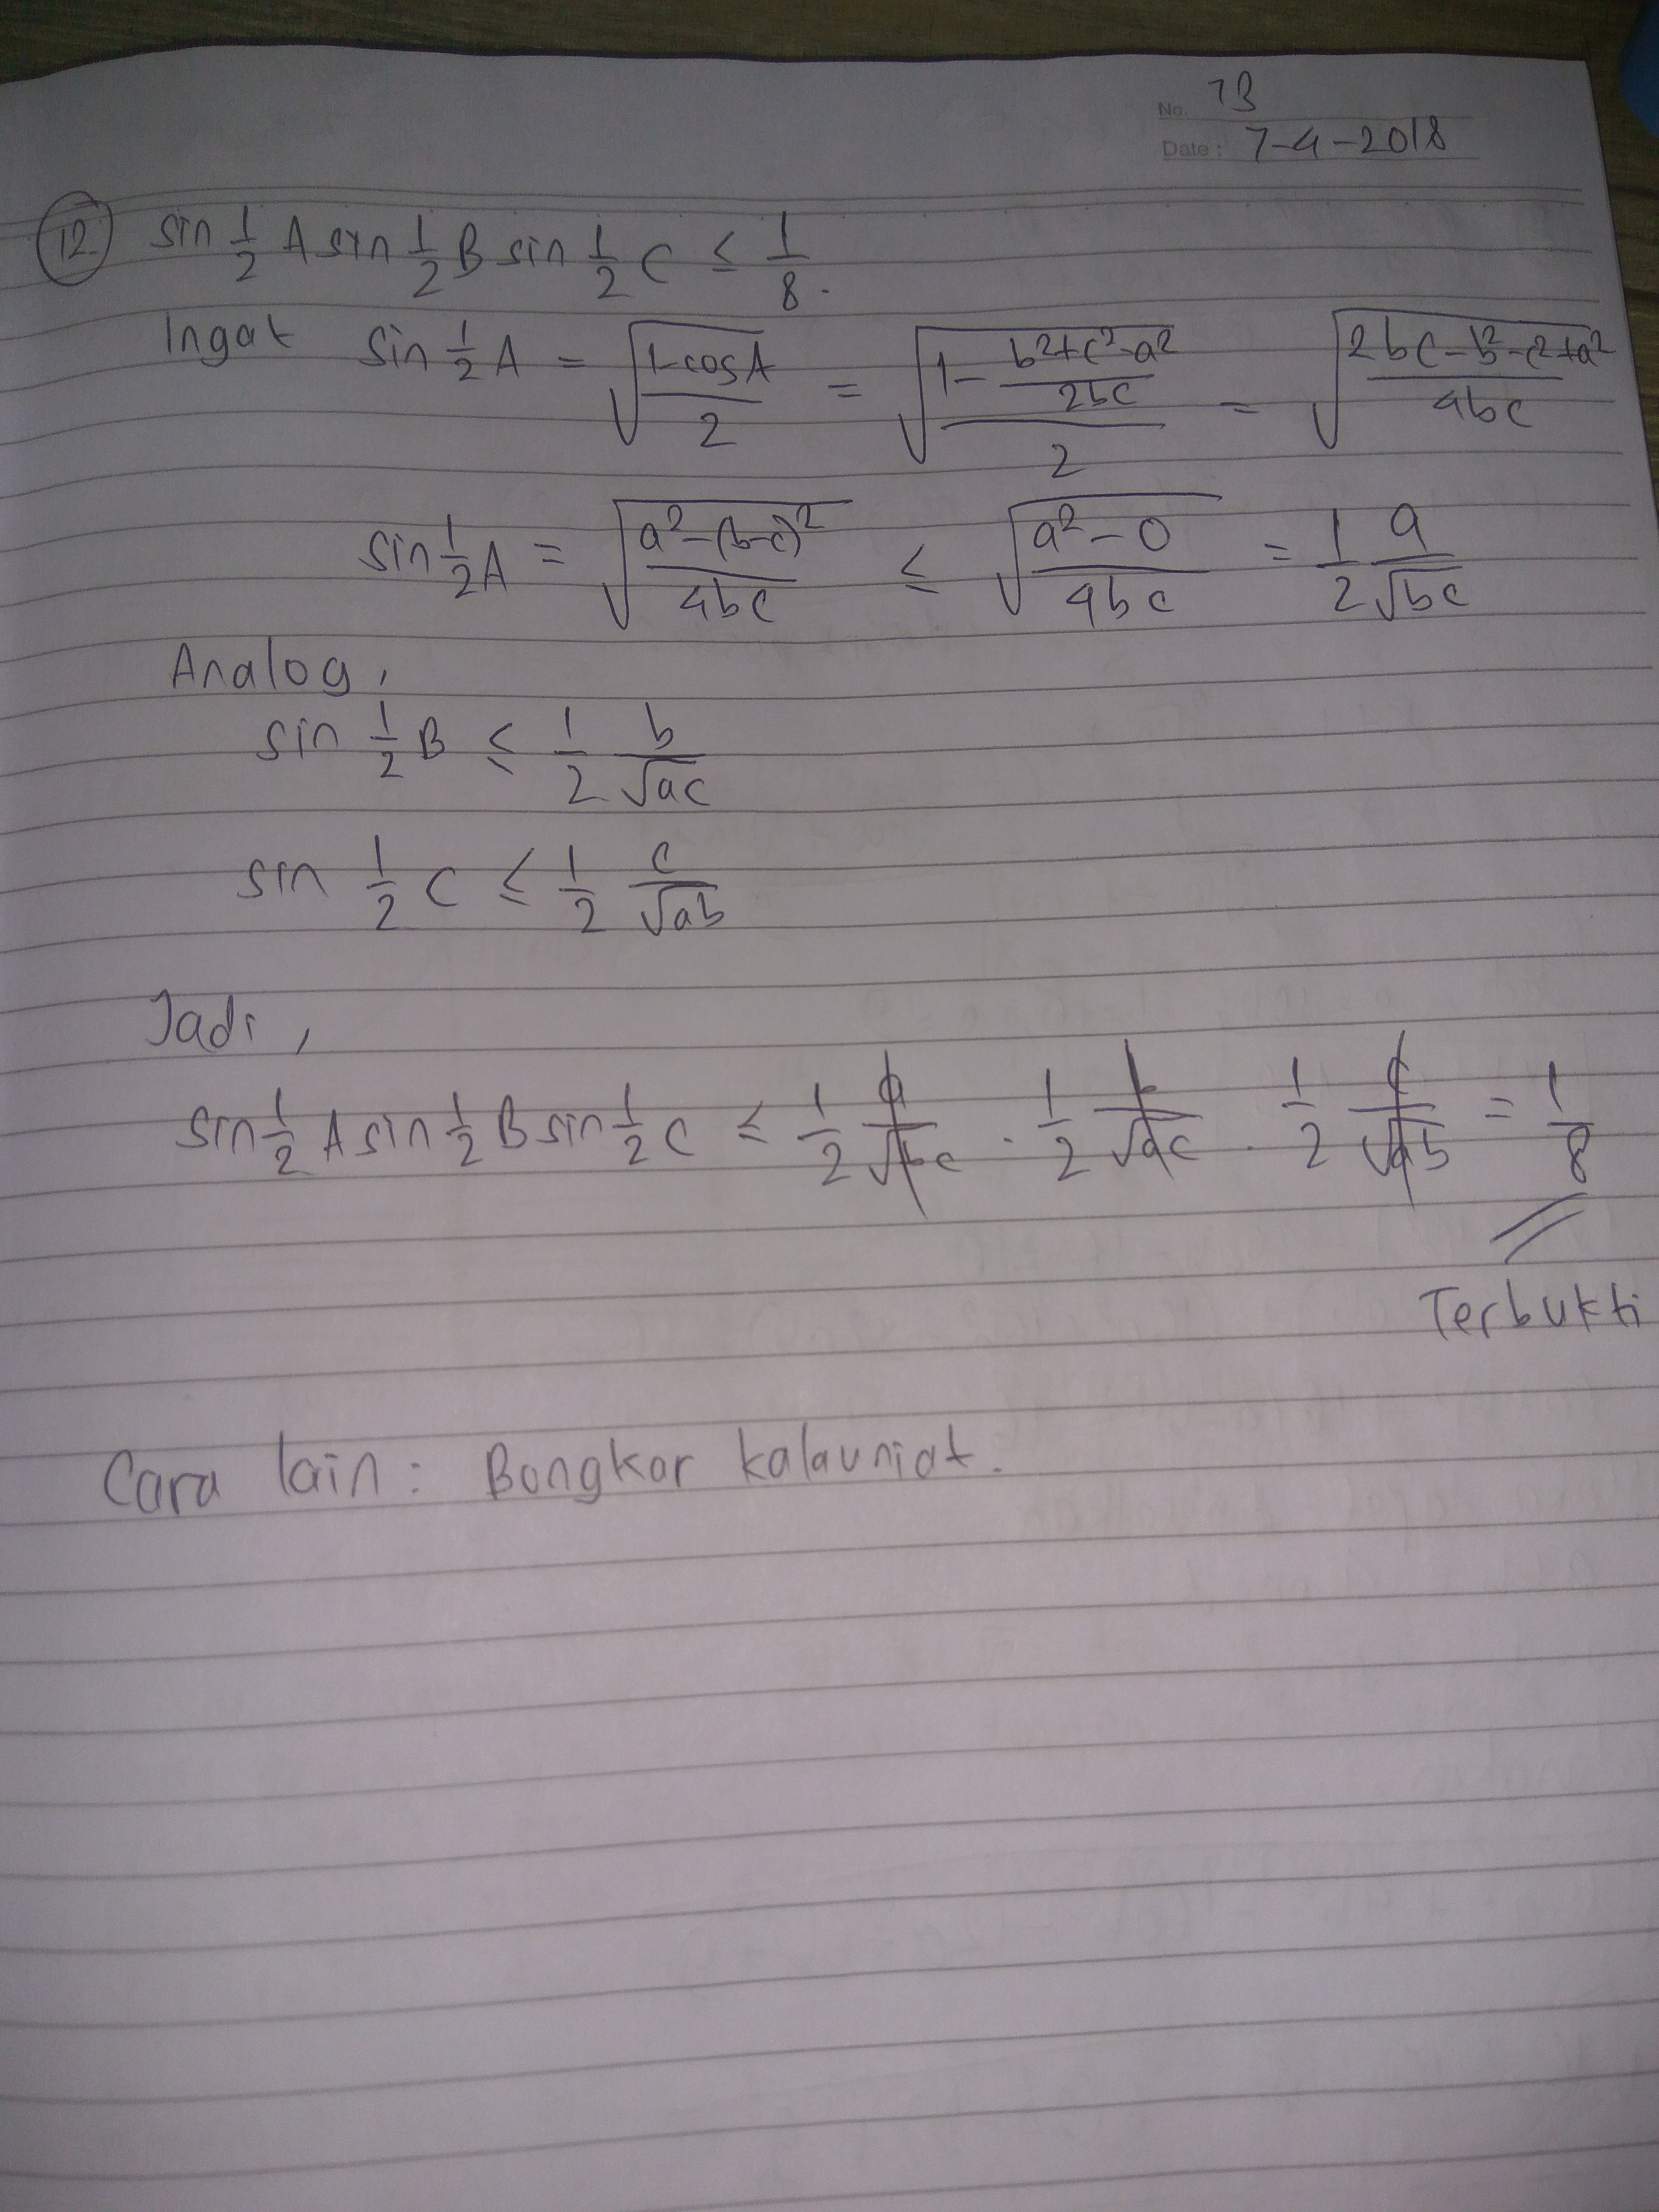 No. 73
Date : 7-4-2018
12. sin 1/2 A sin 1/2 B sin 1/2 C ≤ 1/8.
Ingat sin 1/2 A = √((1-cos A)/2) = √((1-(b²+c²-a²)/(2bc))/2) = √((2bc-b²-c²+a²)/(4bc))
sin 1/2 A = √((a²-(b-c)²)/(4bc)) ≤ √((a²-0)/(4bc)) = 1/2 a/√bc
Analog,
sin 1/2 B ≤ 1/2 b/√ac
sin 1/2 C ≤ 1/2 c/√ab
Jadi,
sin 1/2 A sin 1/2 B sin 1/2 C ≤ 1/2 a/√bc . 1/2 b/√ac . 1/2 c/√ab = 1/8
Terbukti
Cara lain: Bongkar kalau niat.